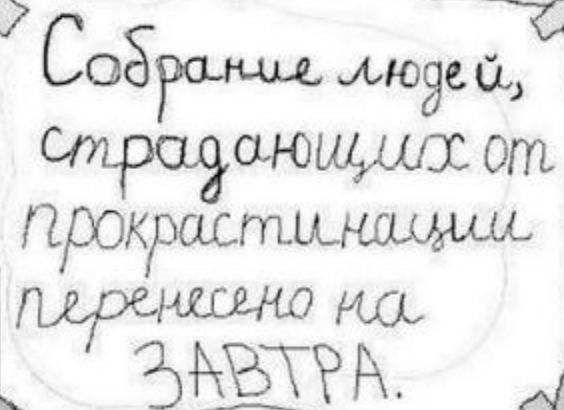 Собрание людей,
страдающих от
прокрастинации
перенесено на
ЗАВТРА.